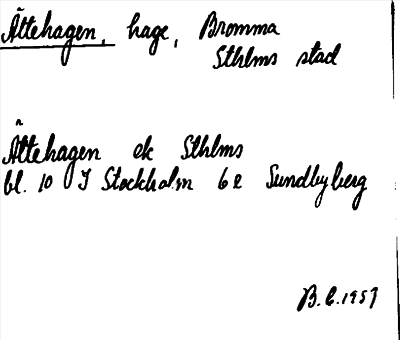 Ättehagen, hage, Bromma
Sthlms stad
Ättehagen ek Sthlms
bl. 10 I Stockholm 6 e Sundbyberg
B.C. 1957